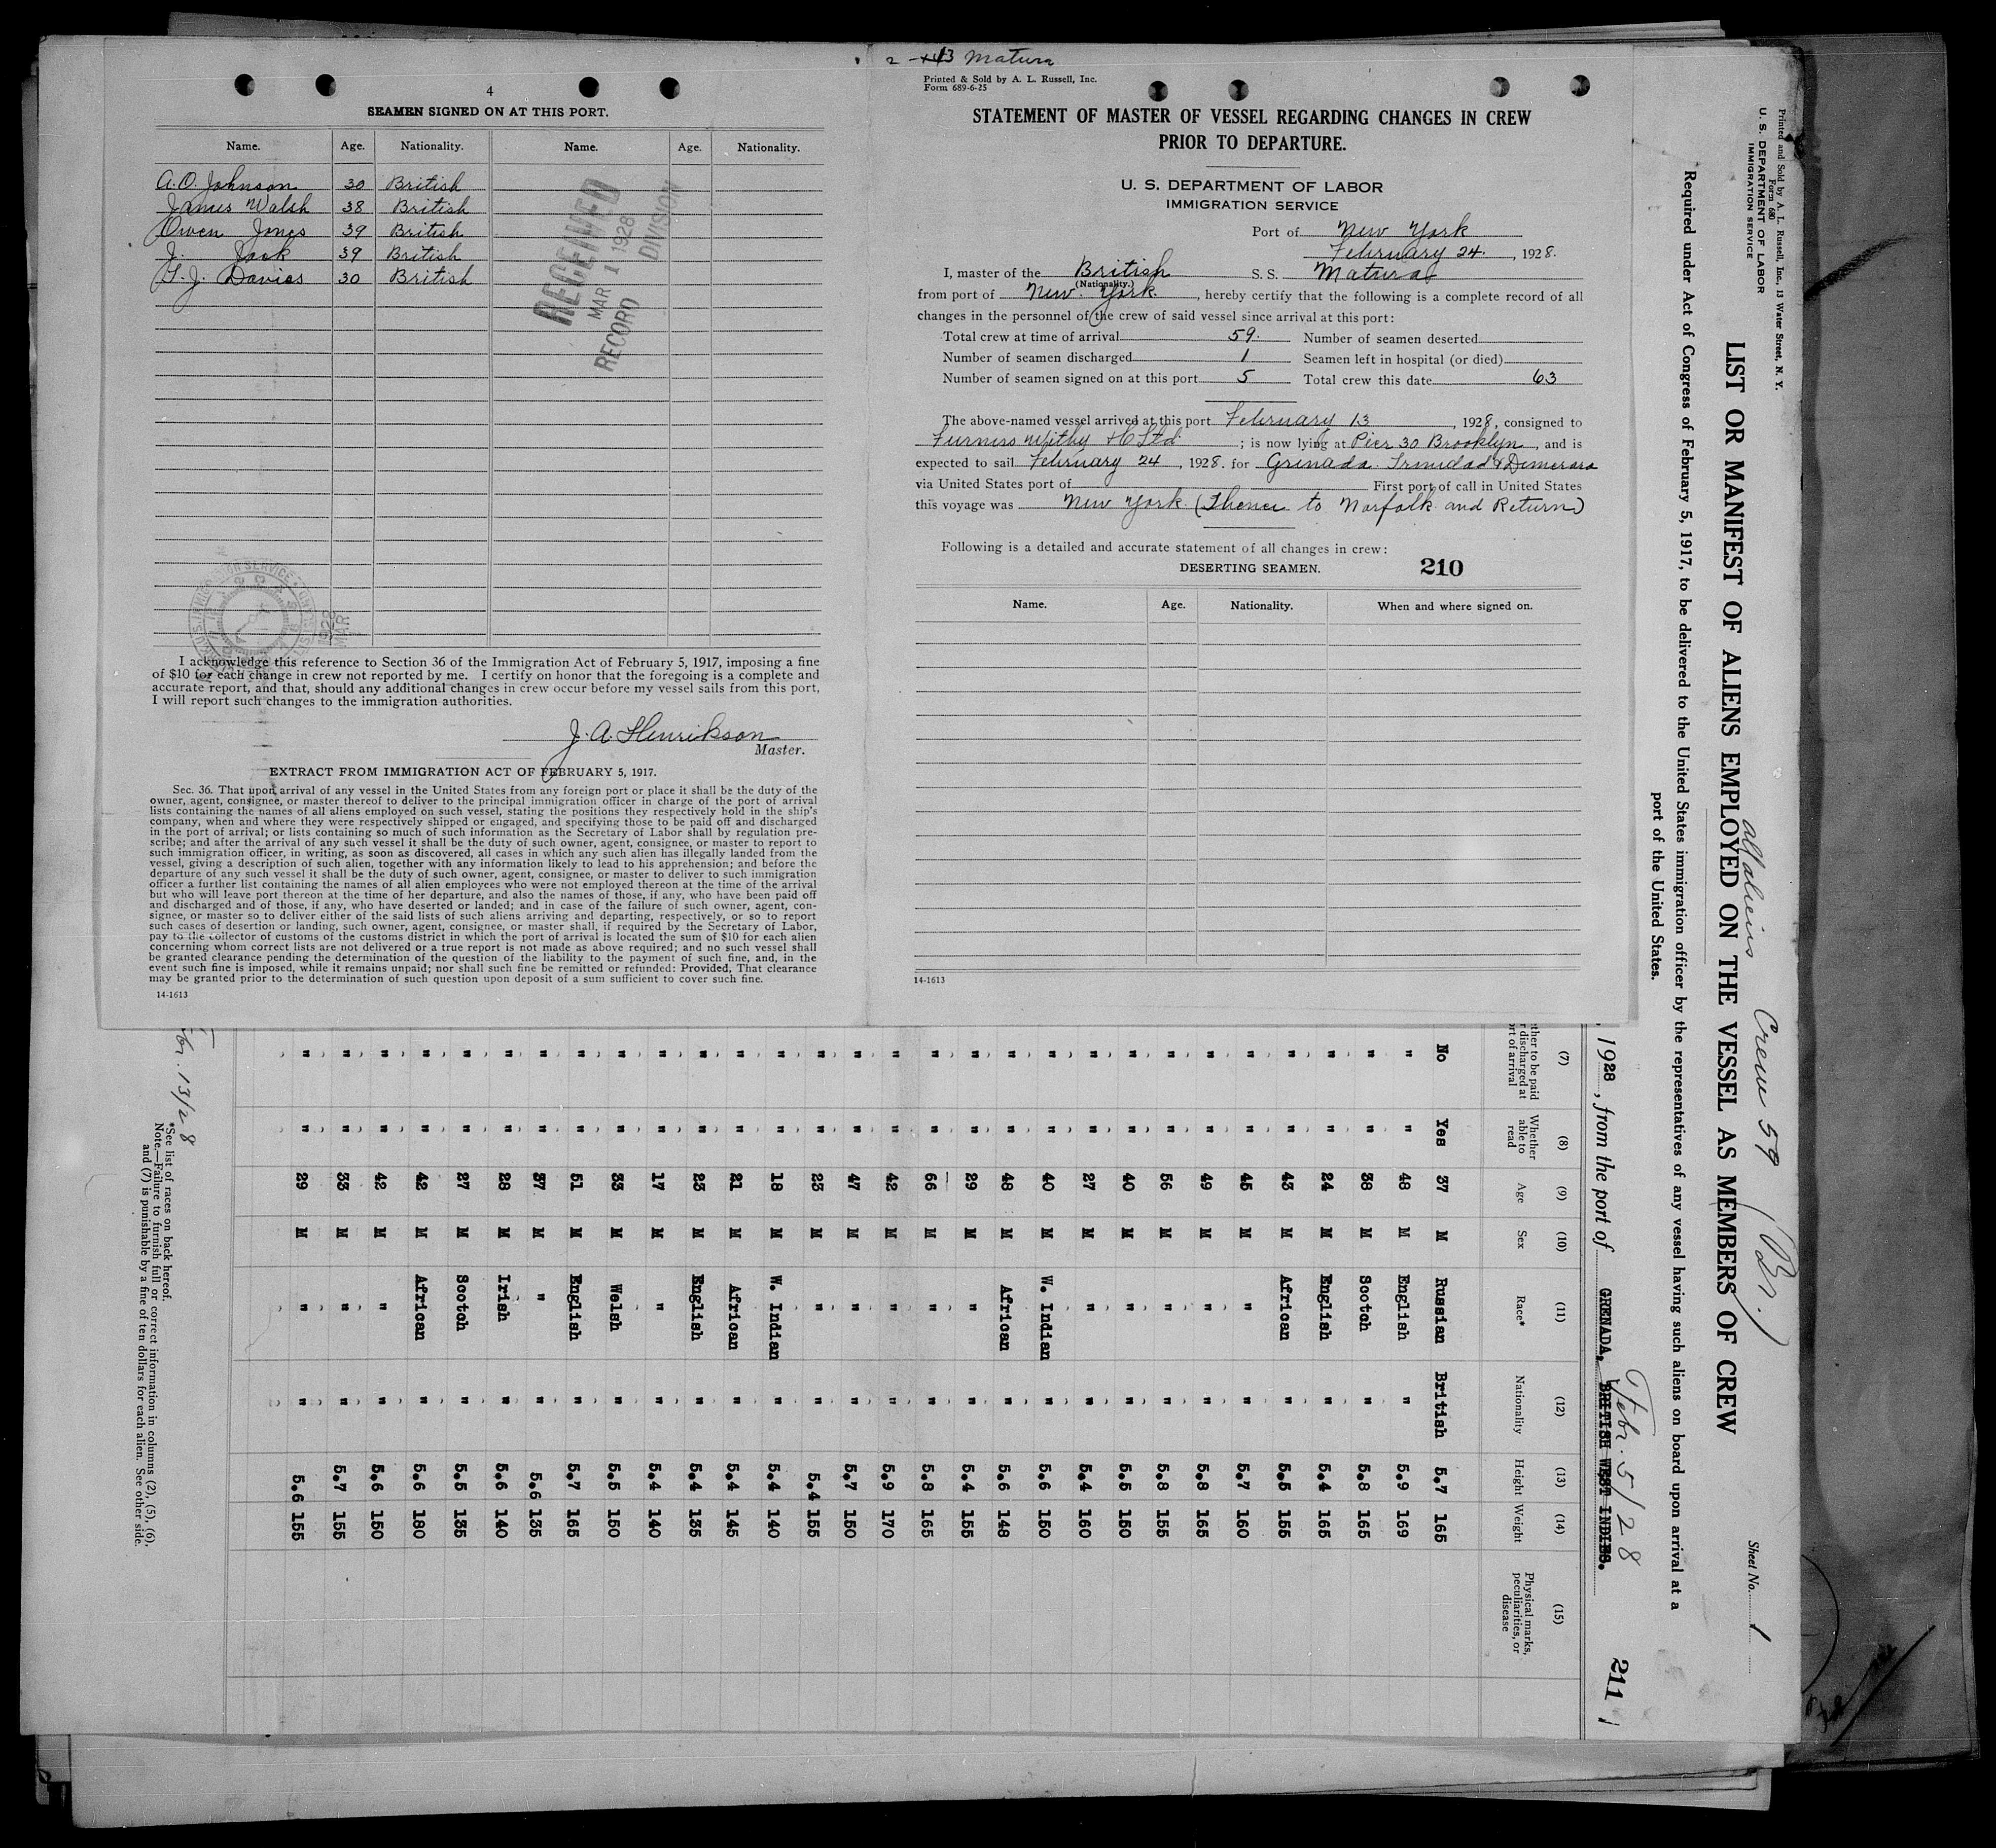 4
SEAMEN SIGNED ON AT THIS PORT.
Name. Age. Nationality. Name. Age. Nationality.
A. O. Johnson 30 British
James Walsh 38 British
Owen Jones 39 British
J. 39 British
T. J. Davies 30 British
RECEIVED
MAR 1 1928
RECORD DIVISION
I acknowledge this reference to Section 36 of the Immigration Act of February 5, 1917, imposing a fine
of $10 for each change in crew not reported by me. I certify on honor that the foregoing is a complete and
accurate report, and that, should any additional changes in crew occur before my vessel sails from this port,
I will report such changes to the immigration authorities.
J. A. Henrikson
Master.
EXTRACT FROM IMMIGRATION ACT OF FEBRUARY 5, 1917.
Sec. 36. That upon arrival of any vessel in the United States from any foreign port or place it shall be the duty of the
owner, agent, consignee, or master thereof to deliver to the principal immigration officer in charge of the port of arrival
lists containing the names of all aliens employed on such vessel, stating the positions they respectively hold in the ship's
company, when and where they were respectively shipped or engaged, and specifying those to be paid off and discharged
in the port of arrival; or lists containing so much of such information as the Secretary of Labor shall by regulation pre-
scribe; and after the arrival of any such vessel it shall be the duty of such owner, agent, consignee, or master to report to
such immigration officer, in writing, as soon as discovered, all cases in which any such alien has illegally landed from the
vessel, giving a description of such alien, together with any information likely to lead to his apprehension; and before the
departure of any such vessel it shall be the duty of such owner, agent, consignee, or master to deliver to such immigration
officer a further list containing the names of all alien employees who were not employed thereon at the time of the arrival
but who will leave port thereon at the time of her departure, and also the names of those, if any, who have been paid off
and discharged and of those, if any, who have deserted or landed; and in case of the failure of such owner, agent, con-
signee, or master so to deliver either of the said lists of such aliens arriving and departing, respectively, or so to report
such cases of desertion or landing, such owner, agent, consignee, or master shall, if required by the Secretary of Labor,
pay to the collector of customs of the customs district in which the port of arrival is located the sum of $10 for each alien
concerning whom correct lists are not delivered or a true report is not made as above required; and no such vessel shall
be granted clearance pending the determination of the question of the liability to the payment of such fine, and, in the
event such fine is imposed, while it remains unpaid; nor shall such fine be remitted or refunded: Provided, That clearance
may be granted prior to the determination of such question upon deposit of a sum sufficient to cover such fine.
14-1613
Matura
Printed & Sold by A. L. Russell, Inc.
Form 689-6-25
STATEMENT OF MASTER OF VESSEL REGARDING CHANGES IN CREW
PRIOR TO DEPARTURE.
U. S. DEPARTMENT OF LABOR
IMMIGRATION SERVICE
Port of New York
February 24. , 1928.
I, master of the British S. S. Matura
(Nationality.)
from port of New York. , hereby certify that the following is a complete record of all
changes in the personnel of the crew of said vessel since arrival at this port:
Total crew at time of arrival 59. Number of seamen deserted
Number of seamen discharged 1 Seamen left in hospital (or died)
Number of seamen signed on at this port 5 Total crew this date 63
The above-named vessel arrived at this port February 13 , 1928, consigned to
Furness Withy & Co Ltd ; is now lying at Pier 30 Brooklyn , and is
expected to sail February 24 , 1928. for Grenada. Trinidad & Demerara
via United States port of First port of call in United States
this voyage was New York (Thence to Norfolk and Return)
Following is a detailed and accurate statement of all changes in crew:
DESERTING SEAMEN. 210
Name. Age. Nationality. When and where signed on.
14-1613
Printed and Sold by A. L. Russell, Inc., 13 Water Street, N. Y.
Form 680
U. S. DEPARTMENT OF LABOR
IMMIGRATION SERVICE
Crew 59 (Br.)
Sheet No. 1
LIST OR MANIFEST OF ALIENS EMPLOYED ON THE VESSEL AS MEMBERS OF CREW
Required under Act of Congress of February 5, 1917, to be delivered to the United States immigration officer by the representatives of any vessel having such aliens on board upon arrival at a
port of the United States.
Febr. 5/28
211
, 1928 , from the port of GRENADA, BRITISH WEST INDIES.
(7) (8) (9) (10) (11) (12) (13) (14) (15)
ther to be paid
r discharged at
ort of arrival
Whether
able to
read
Age Sex Race* Nationality Height Weight
Physical marks,
peculiarities, or
disease
No Yes 37 M Russian British 5.7 165
" " 48 M English " 5.9 169
" " 38 M Scotch " 5.8 165
" " 24 M English " 5.4 165
" " 43 M African " 5.5 155
" " 45 M " " 5.7 160
" " 49 M " " 5.8 165
" " 56 M " " 5.8 155
" " 40 M " " 5.5 150
" " 27 M " " 5.4 160
" " 40 M W. Indian " 5.6 150
" " 48 M African " 5.6 148
" " 29 M " " 5.4 155
" " 66 M " " 5.8 165
" " 42 M " " 5.9 170
" " 47 M " " 5.7 150
" " 23 M " " 5.4 155
" " 18 M W. Indian " 5.4 140
" " 21 M African " 5.4 145
" " 23 M English " 5.4 135
" " 17 M " " 5.4 140
" " 33 M Welsh " 5.5 150
" " 51 M English " 5.7 165
" " 37 M " " 5.6 135
" " 28 M Irish " 5.6 140
" " 27 M Scotch " 5.5 135
" " 42 M African " 5.6 180
" " 42 M " " 5.6 150
" " 33 M " " 5.7 155
" " 29 M " " 5.6 155
br. 13/28
*See list of races on back hereof.
Note.—Failure to furnish full or correct information in columns (2), (5), (6),
and (7) is punishable by a fine of ten dollars for each alien. See other side.